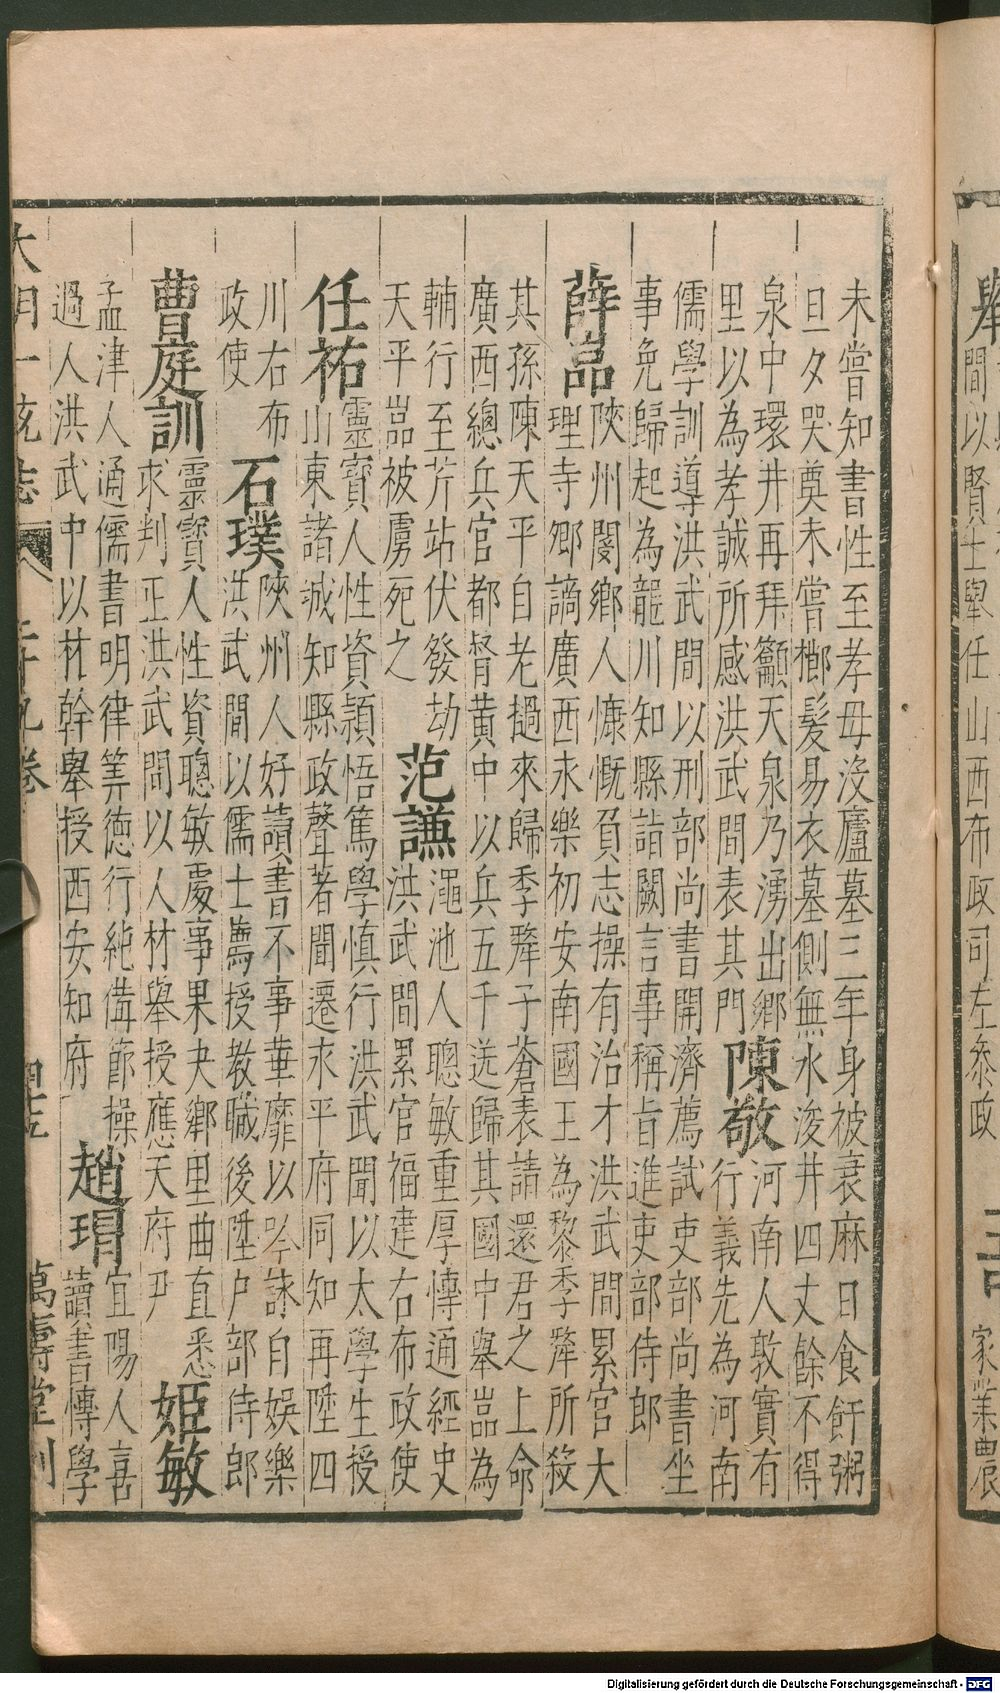 間以賢士舉任山西布政司左參政
家業農
未嘗知書性至孝母沒廬墓三年身被衰麻日食飦粥
旦夕哭奠未嘗櫛髮易衣墓側無水浚井四丈餘不得
泉中環井再拜籲天泉乃湧出鄉
里以為孝誠所感洪武間表其門
陳敬
河南人敦實有
行義先為河南
儒學訓導洪武間以刑部尚書開濟薦試吏部尚書坐
事免歸起為龍川知縣詣闕言事稱旨進吏部侍郎
薛嵓
陝州閿鄉人慷慨負志操有治才洪武間累官大
理寺卿謫廣西永樂初安南國王為黎季犛所殺
其孫陳天平自老撾來歸季犛子蒼表請還君之上命
廣西總兵官都督黃中以兵五千送歸其國中舉嵓為
輔行至芹站伏發劫
天平嵓被虜死之
范謙
澠池人聰敏重厚博通經史
洪武間累官福建右布政使
任祐
靈寶人性資穎悟篤學慎行洪武間以太學生授
山東諸城知縣政聲著聞遷永平府同知再陞四
川右布
政使
石璞
陝州人好讀書不事華靡以吟詠自娛樂
洪武間以儒士薦授教職後陞户部侍郎
曹庭訓
靈寶人性資聰敏處事果夬鄉里曲直悉
求判正洪武間以人材舉授應天府尹
姬敏
孟津人通儒書明律筭德行純備節操
過人洪武中以材幹舉授西安知府
趙瑁
宜陽人喜
讀書博學
大明一統志 二十九卷 萬壽堂刊
Digitalisierung gefördert durch die Deutsche Forschungsgemeinschaft - DFG